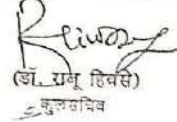 (डॉ. रामू हिवसे)
कुलसचिव